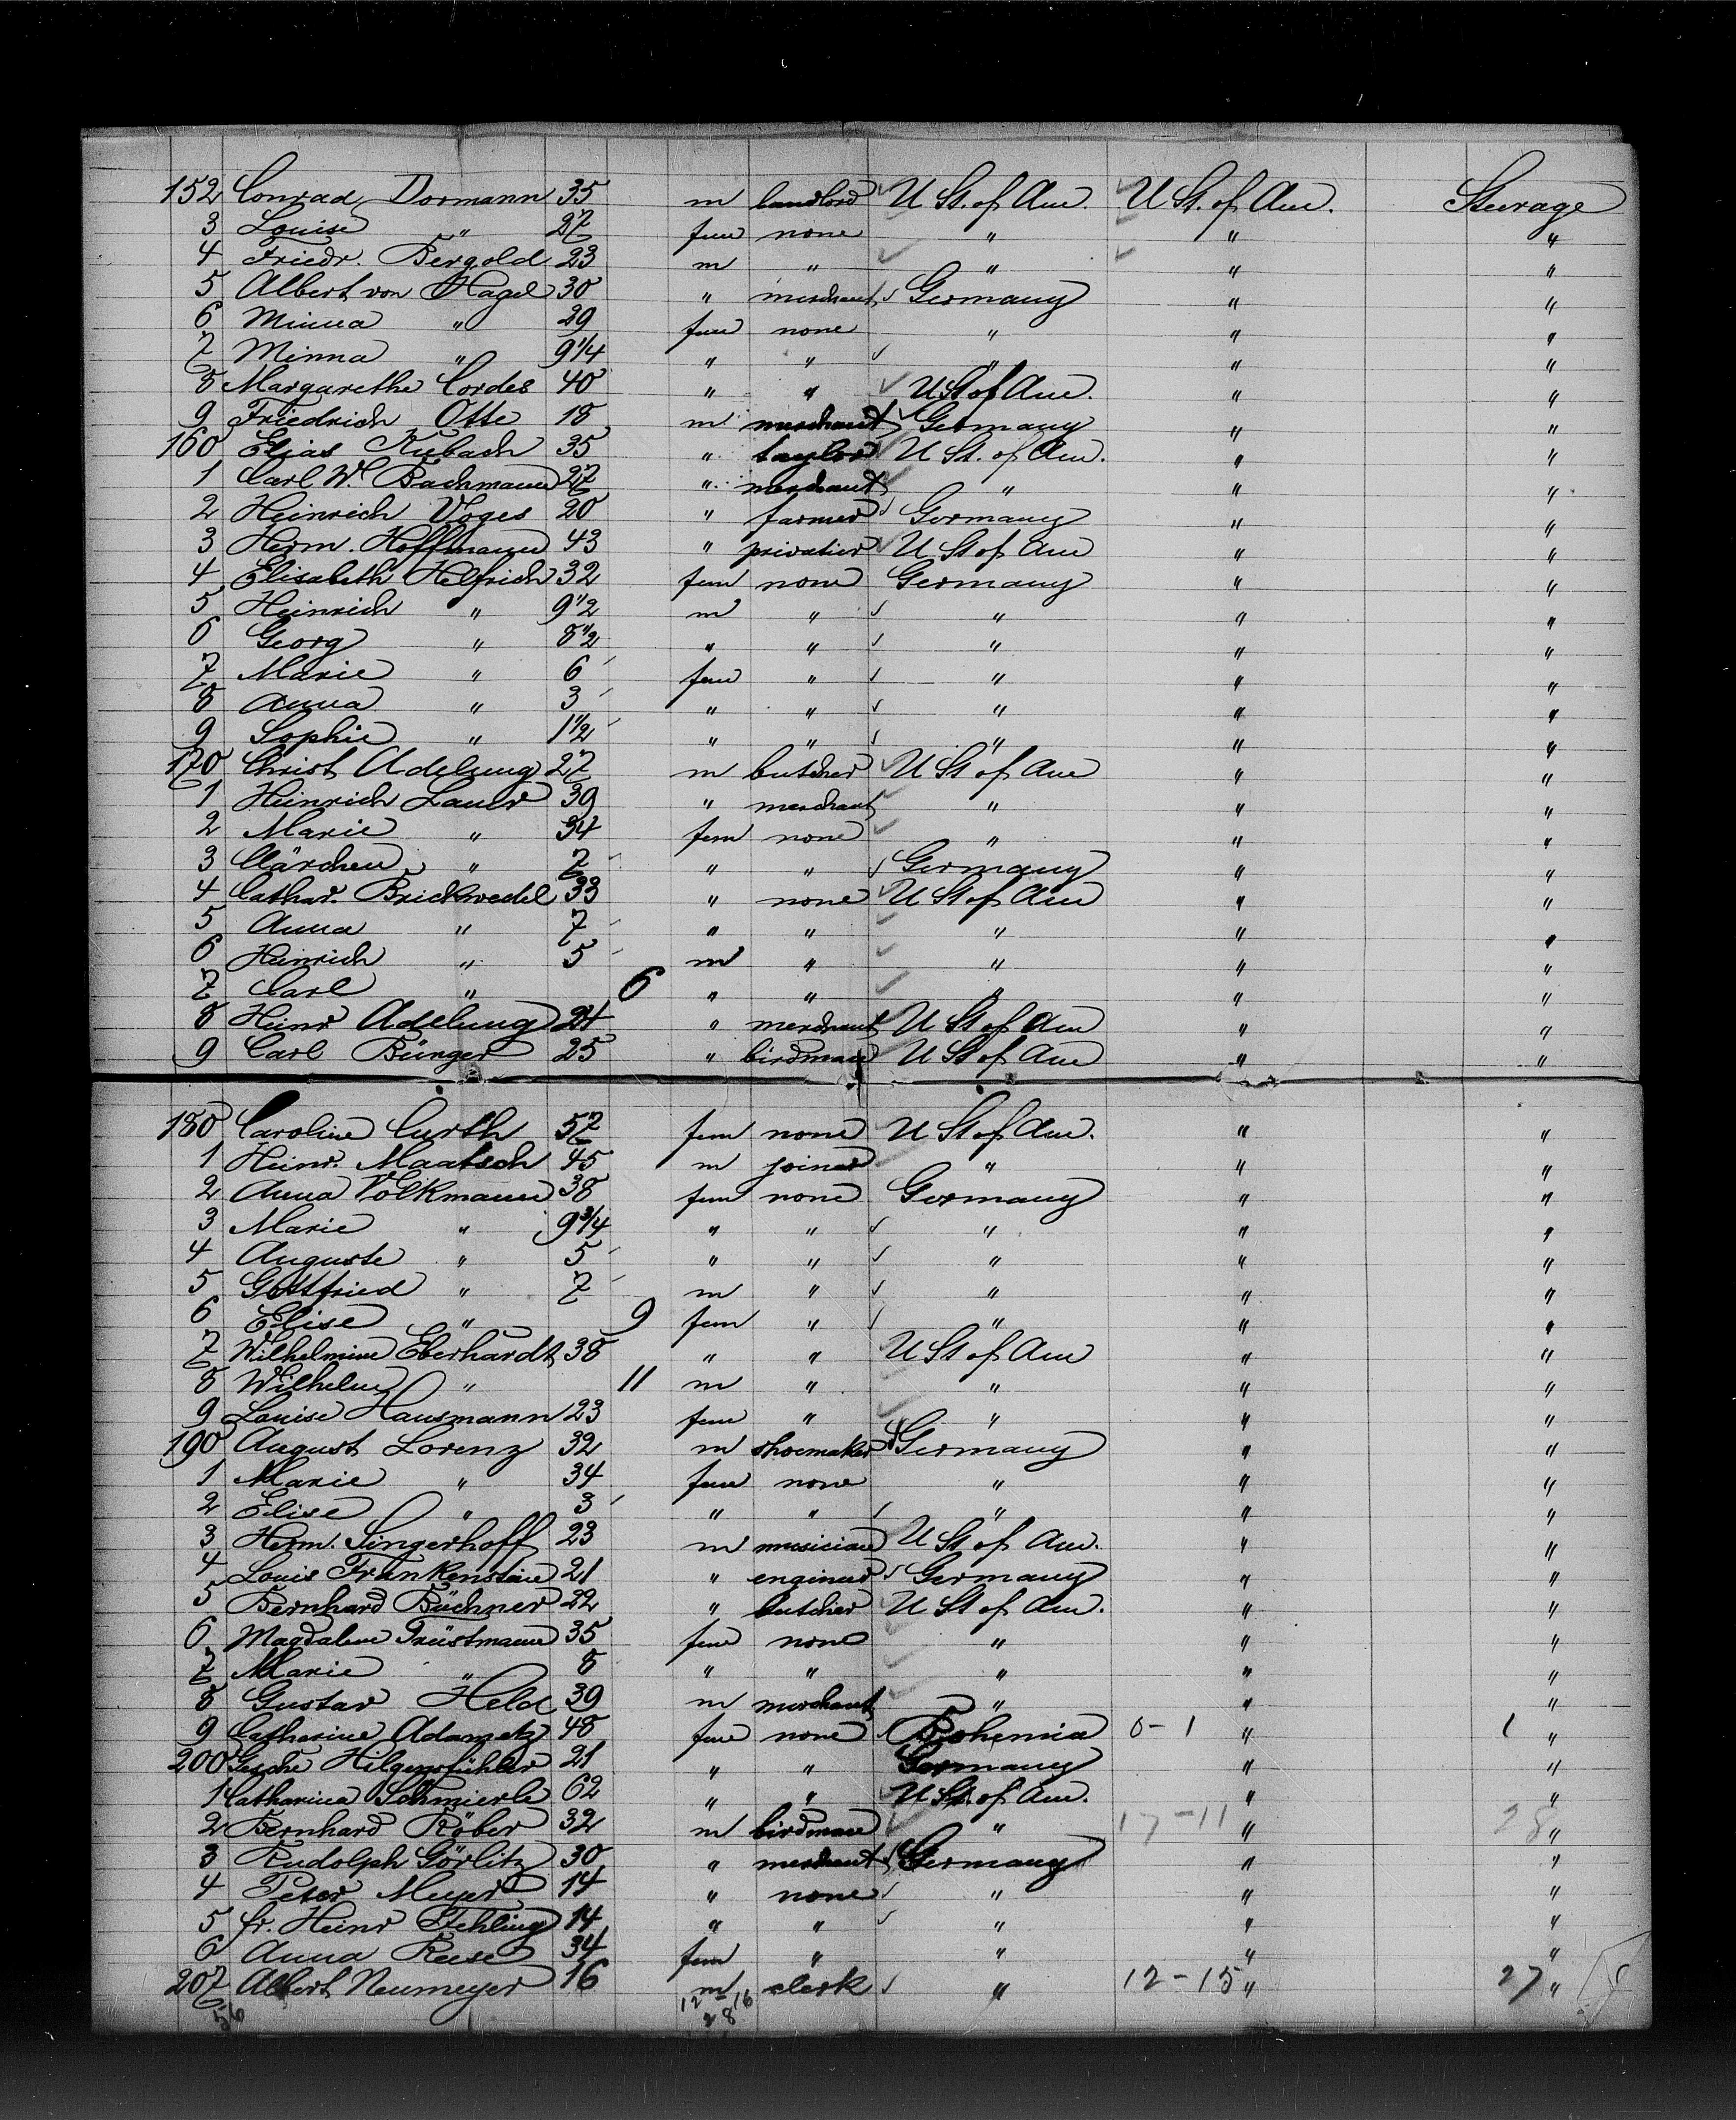 152 Conrad Dormann 35 m landlord U St. of Am. U St. of Am. Steerage
3 Louise " 27 fem none " " "
4 Friedr. Bergold 23 m " " " "
5 Albert von Hagel 30 " merchant Germany " "
6 Minna " 29 fem none " " "
7 Minna " 9 1/4 " " " " "
8 Margarethe Cordes 40 " " U St of Am. " "
9 Friedrich Otte 18 m merchant Germany " "
160 Elias Kubach 35 " taylor U St. of Am. " "
1 Carl W. Bachmann 27 " merchant " " "
2 Heinrich Voges 20 " farmer Germany " "
3 Herm. Hoffmann 43 " privatier U St of Am " "
4 Elisabeth Helfrich 32 fem none Germany " "
5 Heinrich " 9 1/2 m " " " "
6 Georg " 8 1/2 " " " " "
7 Marie " 6 fem " " " "
8 Anna " 3 " " " " "
9 Sophie " 1 1/2 " " " " "
170 Christ Adelung 27 m butcher U St of Am " "
1 Heinrich Lauer 39 " merchant " " "
2 Marie " 34 fem none " " "
3 Clärchen " 7 " " Germany " "
4 Cathar. Brickwedel 33 " none U St of Am " "
5 Anna " 7 " " " " "
6 Heinrich " 5 m " " " "
7 Carl " 6 " " " " "
8 Heinr Adelung 24 " merchant U St of Am " "
9 Carl Bünger 25 " birdman U St of Am " "
180 Caroline Curth 57 fem none U St of Am. " "
1 Heinr. Maatsch 45 m joiner " " "
2 Anna Volkmann 38 fem none Germany " "
3 Marie " 9 3/4 " " " " "
4 Auguste " 5 " " " " "
5 Gottfried " 7 m " " " "
6 Elise " 9 fem " " " "
7 Wilhelmine Eberhardt 38 " " U St of Am " "
8 Wilhelm " 11 m " " " "
9 Louise Hausmann 23 fem " " " "
190 August Lorenz 32 m shoemaker Germany " "
1 Marie " 34 fem none " " "
2 Elise " 3 " " " " "
3 Herm. Singerhoff 23 m musician U St of Am. " "
4 Louis Frankenstein 21 " engineer Germany " "
5 Bernhard Büchner 22 " butcher U St of Am. " "
6 Magdalene Trüstmann 35 fem none " " "
7 Marie " 8 " " " " "
8 Gustav Held 39 m merchant " " "
9 Catharine Adametz 48 fem none Bohemia 0-1 " 1 "
200 Gesche 21 " " Germany " "
1 Catharina Schmierle 62 " " U St. of Am. " "
2 Bernhard Röber 32 m birdman " 17-11 " 28 "
3 Rudolph Görlitz 30 " merchant Germany " "
4 Peter Meyer 14 " none " " "
5 fr. Heinr Fehling 14 " " " " "
6 Anna Reese 34 fem " " " "
207 Albert Neumeyer 16 m clerk " 12-15 " 27 "
56 12-16
28